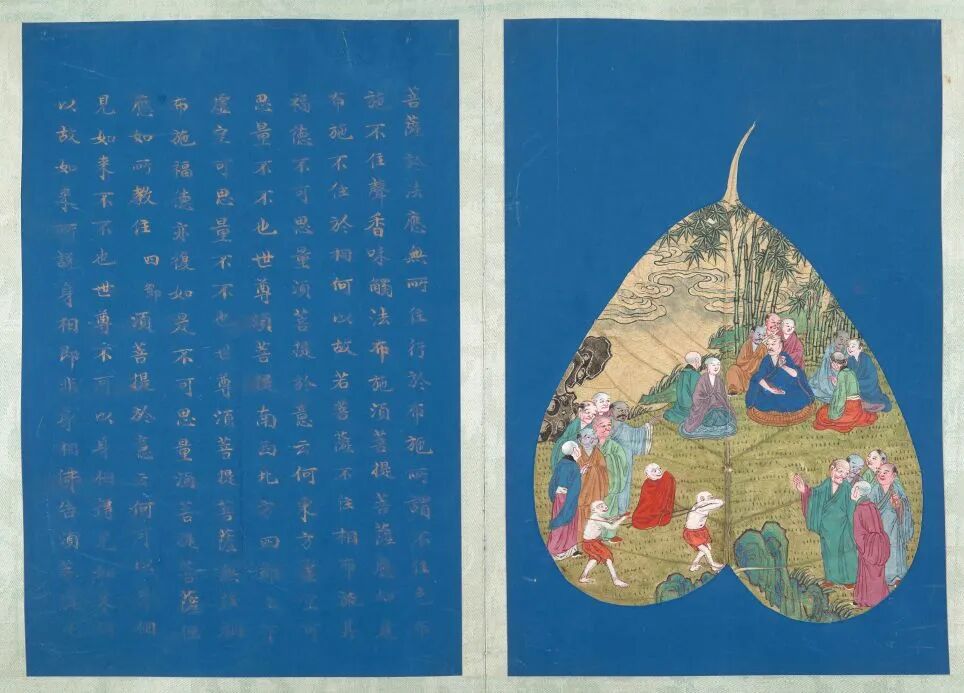 菩薩於法應無所住行於布施所謂不住色布
施不住聲香味觸法布施須菩提菩薩應如是
布施不住於相何以故若菩薩不住相布施其
福德不可思量須菩提於意云何東方虛空可
思量不不也世尊須菩提南西北方四維上下
虛空可思量不不也世尊須菩提菩薩無住相
布施福德亦復如是不可思量須菩提菩薩但
應如所教住四節須菩提於意云何可以身相
見如來不不也世尊不可以身相得見如來何
以故如來所說身相即非身相佛告須菩提凡